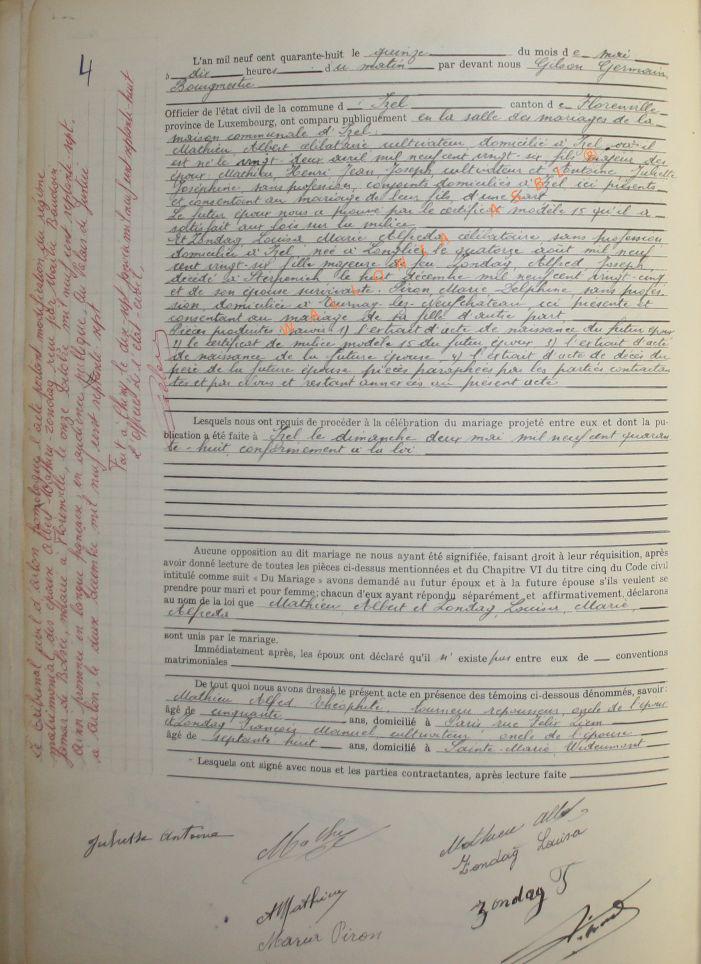 4
L'an mil neuf cent quarante-huit le quinze du mois de mai
à dix heures du matin par devant nous Gilson Germain,
Bourgmestre
Officier de l'état civil de la commune d' Izel canton de Florenville
province de Luxembourg, ont comparu publiquement en la salle des mariages de la
maison communale d'Izel.
Mathieu, Albert célibataire cultivateur, domicilié à Izel où il
est né le vingt deux avril mil neuf cent vingt-six fils majeur des
époux Mathieu, Henri Jean Joseph, cultivateur et Antoine, Juliette
Joséphine, sans profession, conjoints domiciliés à Izel ici présents
et consentant au mariage de leur fils, d'une part.
Le futur époux nous a prouvé par le certificat modèle 15 qu'il a
satisfait aux lois sur la milice
Et Zondag, Louisa Marie Alfréda célibataire sans profession
domiciliée à Izel, née à Longlier le quatorze août mil neuf
cent vingt-six fille majeure de feu Zondag, Alfred Joseph
décédé à Sterpenich le huit décembre mil neuf cent vingt-cinq
et de son épouse survivante Piron, Marie Delphine, sans profes-
sion, domiciliée à Tournay-lez-Neufchateau ici présente et
consentant au mariage de sa fille d'autre part
Pièces produites savoir 1) l'extrait d'acte de naissance du futur époux
2) le certificat de milice modèle 15 du futur époux 3) l'extrait d'acte
de naissance de la future épouse 4) l'extrait d'acte de décès du
père de la future épouse pièces paraphées par les parties contractan
tes et par Nous et restant annexées au présent acte
Lesquels nous ont requis de procéder à la célébration du mariage projeté entre eux et dont la pu-
blication a été faite à Izel le dimanche deux mai mil neuf cent quaran
te-huit, conformément à la loi
Aucune opposition au dit mariage ne nous ayant été signifiée, faisant droit à leur réquisition, après
avoir donné lecture de toutes les pièces ci-dessus mentionnées et du Chapitre VI du titre cinq du Code civil
intitulé comme suit « Du Mariage » avons demandé au futur époux et à la future épouse s'ils veulent se
prendre pour mari et pour femme; chacun d'eux ayant répondu séparément et affirmativement, déclarons
au nom de la loi que Mathieu, Albert et Zondag, Louisa, Marie,
Alfréda
sont unis par le mariage.
Immédiatement après, les époux ont déclaré qu'il n'existe pas entre eux de conventions
matrimoniales
De tout quoi nous avons dressé le présent acte en présence des témoins ci-dessous dénommés, savoir:
Mathieu Alfred Théophile, tourneur repousseur, oncle de l'époux
âgé de cinquante ans, domicilié à Paris rue Félix
Zondag François Manuel, cultivateur oncle de l'épouse
âgé de septante huit ans, domicilié à Sainte-Marie, Wideumont
Lesquels ont signé avec nous et les parties contractantes, après lecture faite
Juliette Antoine
Mathieu Alb.
Zondag Louisa
AMathieu
Zondag F
Marie Piron
Le tribunal civil d'Arlon homologue l'acte portant modification du régime
matrimonial des époux Albert Mathieu-Zondag reçu par Maître Baudouin
Jamar de Bolsée, notaire à Florenville, le onze octobre mil neuf cent septante sept.
Ainsi prononcé en langue française, en audience publique au Palais de Justice
à Arlon, le deux décembre mil neuf cent septante sept
Fait à Chiny le dix-sept janvier mil neuf cent septante-huit
L'officier de l'état-civil,
WALLONIA ASBL